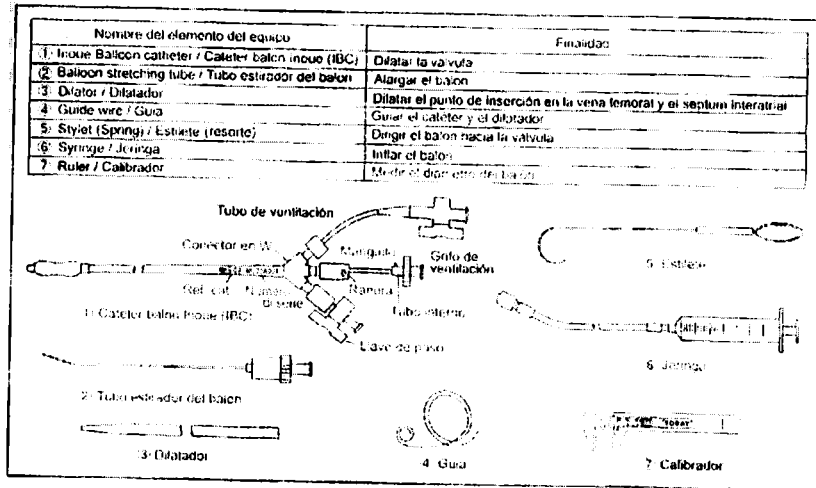 Nombre del elemento del equipo
Finalidad
① Inoue Balloon catheter / Cateter balon Inoue (IBC)
Dilatar la valvula
② Balloon stretching tube / Tubo estirador del balon
Alargar el balon
③ Dilator / Dilatador
Dilatar el punto de inserción en la vena femoral y el septum interatrial
4 Guide wire / Guia
Guiar el catéter y el dilatador
5 Stylet (Spring) / Estilete (resorte)
Dirigir el balon hacia la válvula
⑥ Syringe / Jeringa
Inflar el balon
7 Ruler / Calibrador
Medir el diametro del balon
Tubo de ventilación
Conector en W
Manguito
Grifo de
ventilación
Ref. cat.
Número
de serie
Ranura
Tubo interno
1) Cateter balon Inoue (IBC)
Llave de paso
5 Estilete
6 Jeringa
2) Tubo estirador del balon
3) Dilatador
4 Guia
"TORAY"
7 Calibrador